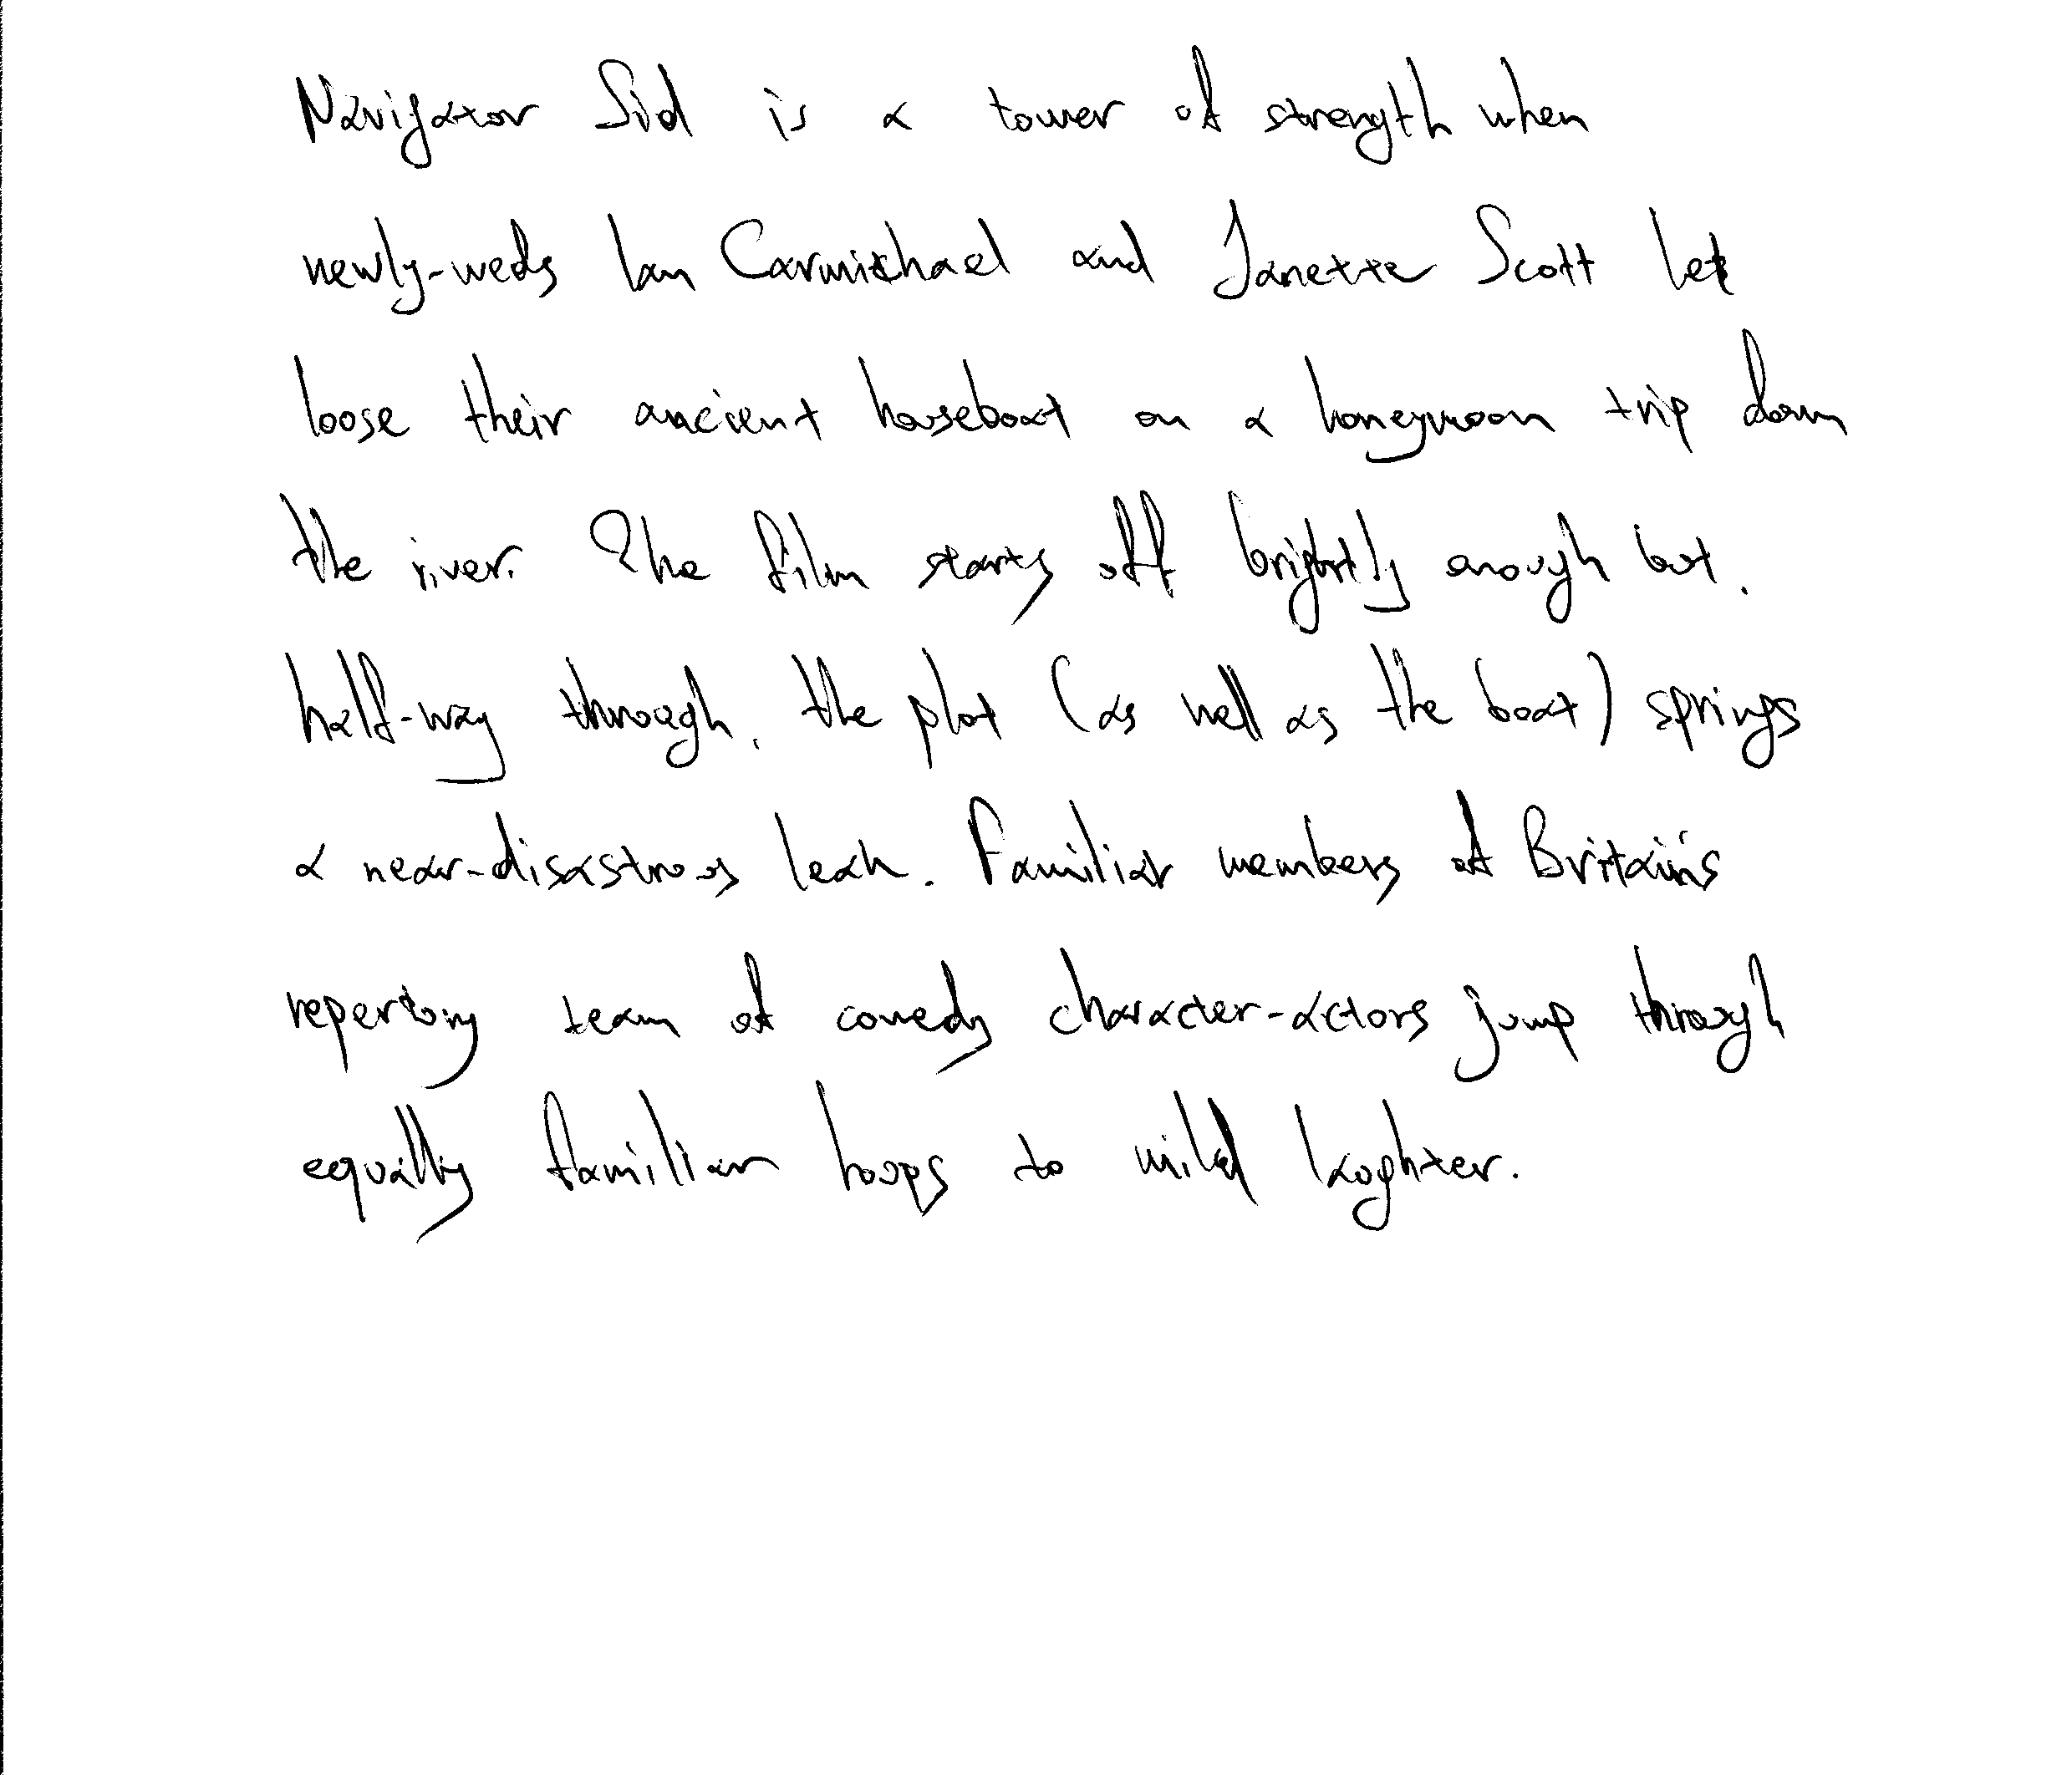 Navigator Sid is a tower of strength when
newly-weds Ian Carmichael and Janette Scott let
loose their ancient houseboat on a honeymoon trip down
the river. The film starts off brightly enough but.
half-way through, the plot (as well as the boat) springs
a near-disastrous leak. Familiar members of Britain's
repertory team of comedy character-actors jump through
equally familiar hoops to mild laughter.